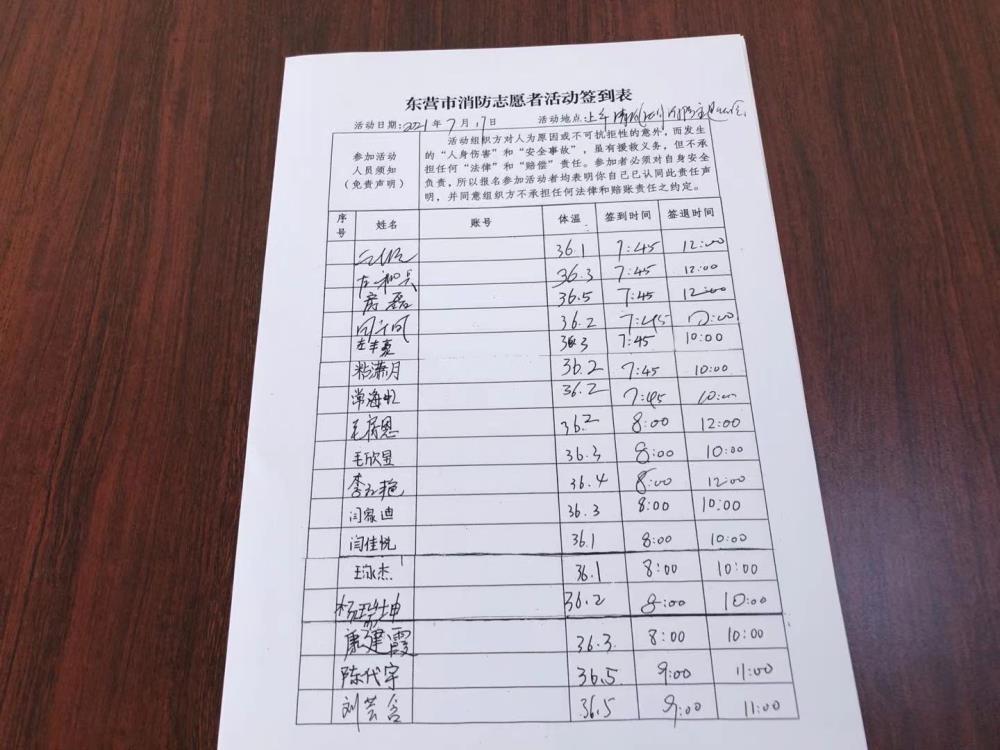 东营市消防志愿者活动签到表
活动日期:2021年7月17日 活动地点:上午
参加活动
人员须知
(免责声明)
活动组织方对人为原因或不可抗拒性的意外,而发生
的“人身伤害”和“安全事故”,虽有援救义务,但不承
担任何“法律”和“赔偿”责任。参加者必须对自身安全
负责,所以报名参加活动者均表明你自己已认同此责任声
明,并同意组织方不承担任何法律和赔账责任之约定。
序号 姓名 账号 体温 签到时间 签退时间
36.1 7:45 12:00
36.3 7:45 12:00
房磊 36.5 7:45 12:00
36.2 7:45
36.3 7:45 10:00
粘潇月 36.2 7:45 10:00
常海 36.2 7:45 10:00
毛宥恩 36.2 8:00 12:00
毛欣昱 36.3 8:00 10:00
李玉艳 36.4 8:00 12:00
闫家迪 36.3 8:00 10:00
闫佳悦 36.1 8:00 10:00
王泳杰 36.1 8:00 10:00
杨 坤 36.2 8:00 10:00
康建霞 36.3 8:00 10:00
陈代宇 36.5 9:00 11:00
刘芸含 36.5 9:00 11:00